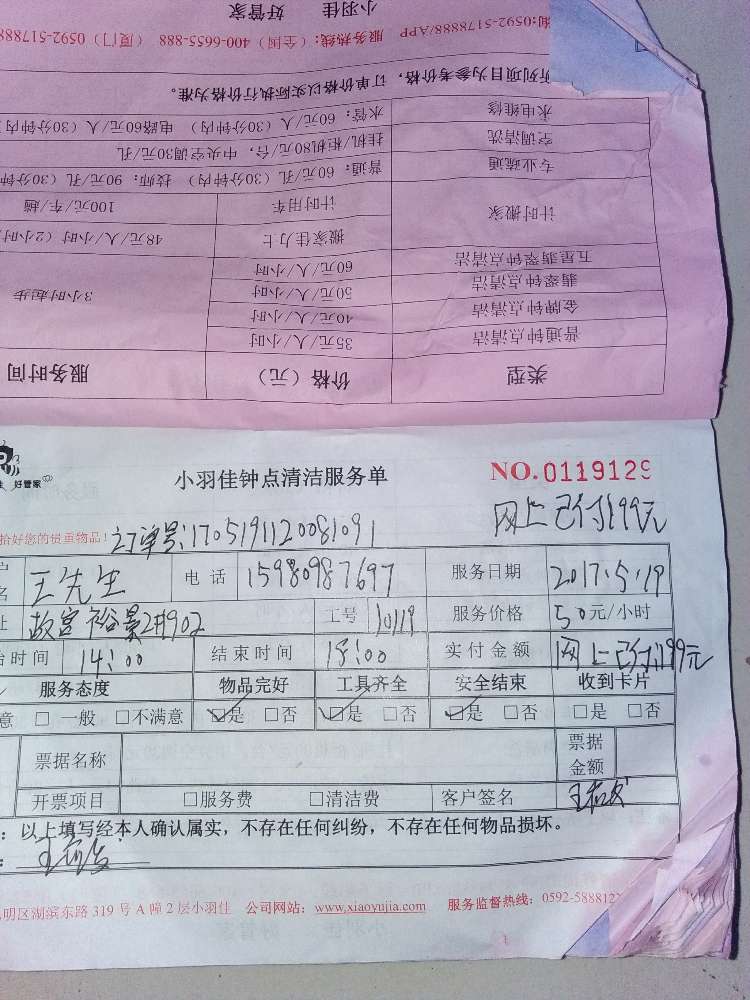 小羽佳 好管家
服务热线:(全国)400-6655-888 (厦门)0592-517888
:0592-5178888/APP
所列项目为参考价格,订单价格以实际执行价格为准。
水电维修 水管:60元/人(30分钟内) 电路60元/人(30分钟内
空调清洗 挂机/柜机80元/台,中央空调30元/孔
专业疏通 普通:60元/孔(30分钟内) 技师:90元/孔(30分钟
计时搬家 计时用车 100元/车/趟
搬家佳力士 48元/人/小时(2小时
五星翡翠钟点清洁 60元/人/小时
翡翠钟点清洁 50元/人/小时
金牌钟点清洁 40元/人/小时
普通钟点清洁 35元/人/小时
3小时起步
类型 价格(元) 服务时间
好管家
小羽佳钟点清洁服务单 NO.0119129
网上已付199元
拾好您的贵重物品! 订单号:1705191120081091
王先生 电话 15980987697 服务日期 2017.5.19
址 故宫裕景2#902 工号 10119 服务价格 50元/小时
始时间 14:00 结束时间 18:00 实付金额 网上已付199元
服务态度 物品完好 工具齐全 安全结束 收到卡片
意 □一般 □不满意 ☑是 □否 ☑是 □否 ☑是 □否 □是 □否
票据名称 票据金额
开票项目 □服务费 □清洁费 客户签名
:以上填写经本人确认属实,不存在任何纠纷,不存在任何物品损坏。
明区湖滨东路319号A幢2层小羽佳 公司网站:www.xiaoyujia.com 服务监督热线:0592-588812